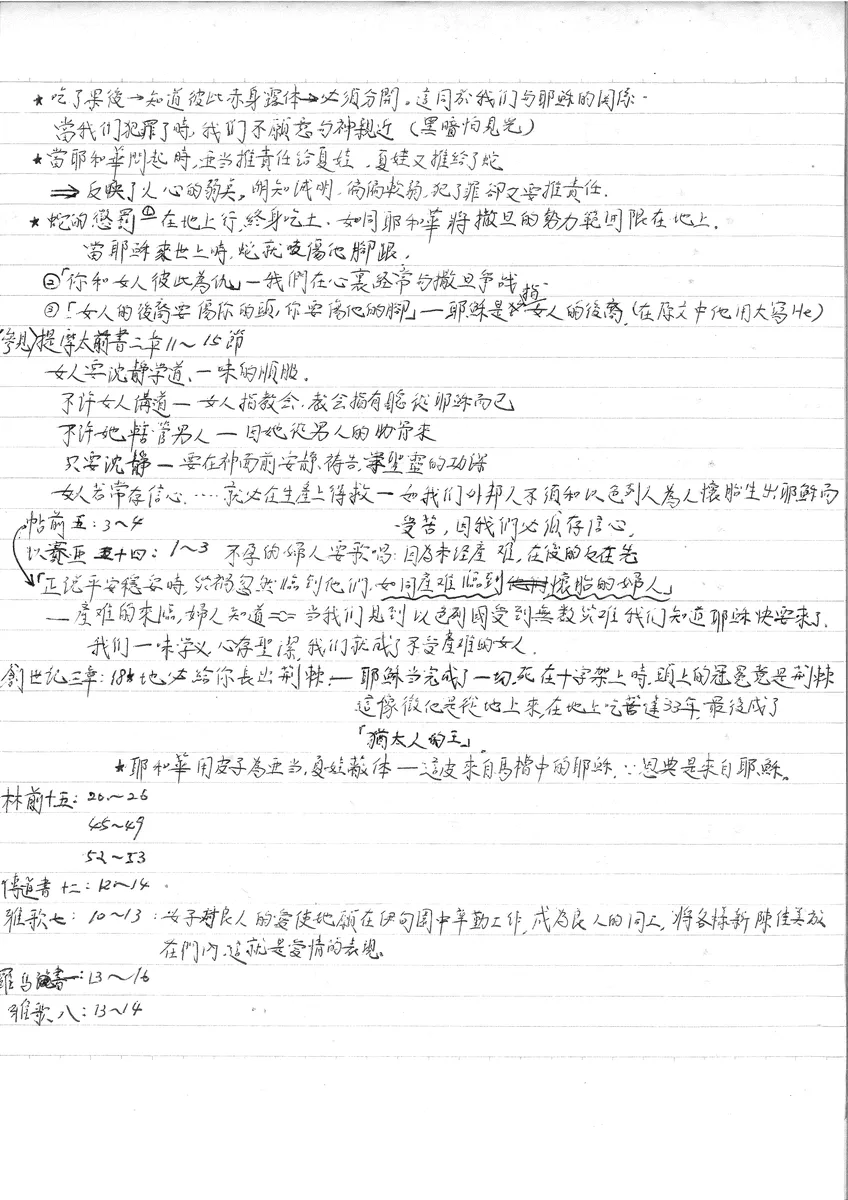 ★吃了果後→知道彼此赤身露体→必須分開。這同於我们与耶穌的関係.
當我们犯罪了時,我们不願意与神親近(黑暗怕見光)
★當耶和華問起時,亚当推責任給夏娃,夏娃又推給了蛇
⇒反映了人心的弱点,明知試明,偏偏軟弱,犯了罪卻又要推責任.
★蛇的懲罰①在地上行,終身吃土.如同耶和華將撒旦的勢力範囲限在地上.
當耶穌來世上時,蛇就咬傷他腳跟,
②「你和女人彼此為仇」—我們在心裏經常与撒旦争战.
③「女人的後裔要傷你的頭,你要傷他的腳」—耶穌是指女人的後裔,(在原文中他用大寫He)
(參見)提摩太前書二章11~15節
女人要沈静学道,一味的順服.
不许女人講道—女人指教会.教会指有聽從耶穌而已
不许她轄管男人—因她從男人的肋骨來
只要沈静—要在神面前安静,禱告,聖靈的功课
女人若常存信心,……就必在生產上得救—如我们外邦人不須和以色列人為人懷胎生出耶穌而
帖前五:3~4 受苦,因我们必須存信心,
以賽亚五十四:1~3 不孕的婦人要歌唱:因為未經產難,在後的反在先
「正說平安穩妥時,災禍忽然臨到他們,如同產难臨到懷胎的婦人」
—產难的來臨,婦人知道=○=當我们見到以色列國受到無数災难我们知道耶穌快要來了.
我们一味学义,心存聖潔,我们就成了不受產难的女人.
創世纪三章:18地必給你長出荊棘.—耶穌当完成了一切,死在十字架上時.頭上的冠冕竟是荊棘
這像徵他是從地上來,在地上吃苦達33年,最後成了
「猶太人的王」。
★耶和華用皮子為亚当,夏娃蔽体—這皮來自馬槽中的耶穌,∵恩典是來自耶穌。
林前十五:20~26
45~49
52~53
傳道書十二:12~14
雅歌七:10~13:女子對良人的愛使她願在伊甸園中辛勤工作,成為良人的同工,將各樣新陳佳美放
在門內,這就是愛情的表現。
羅馬一:13~16
雅歌八:13~14